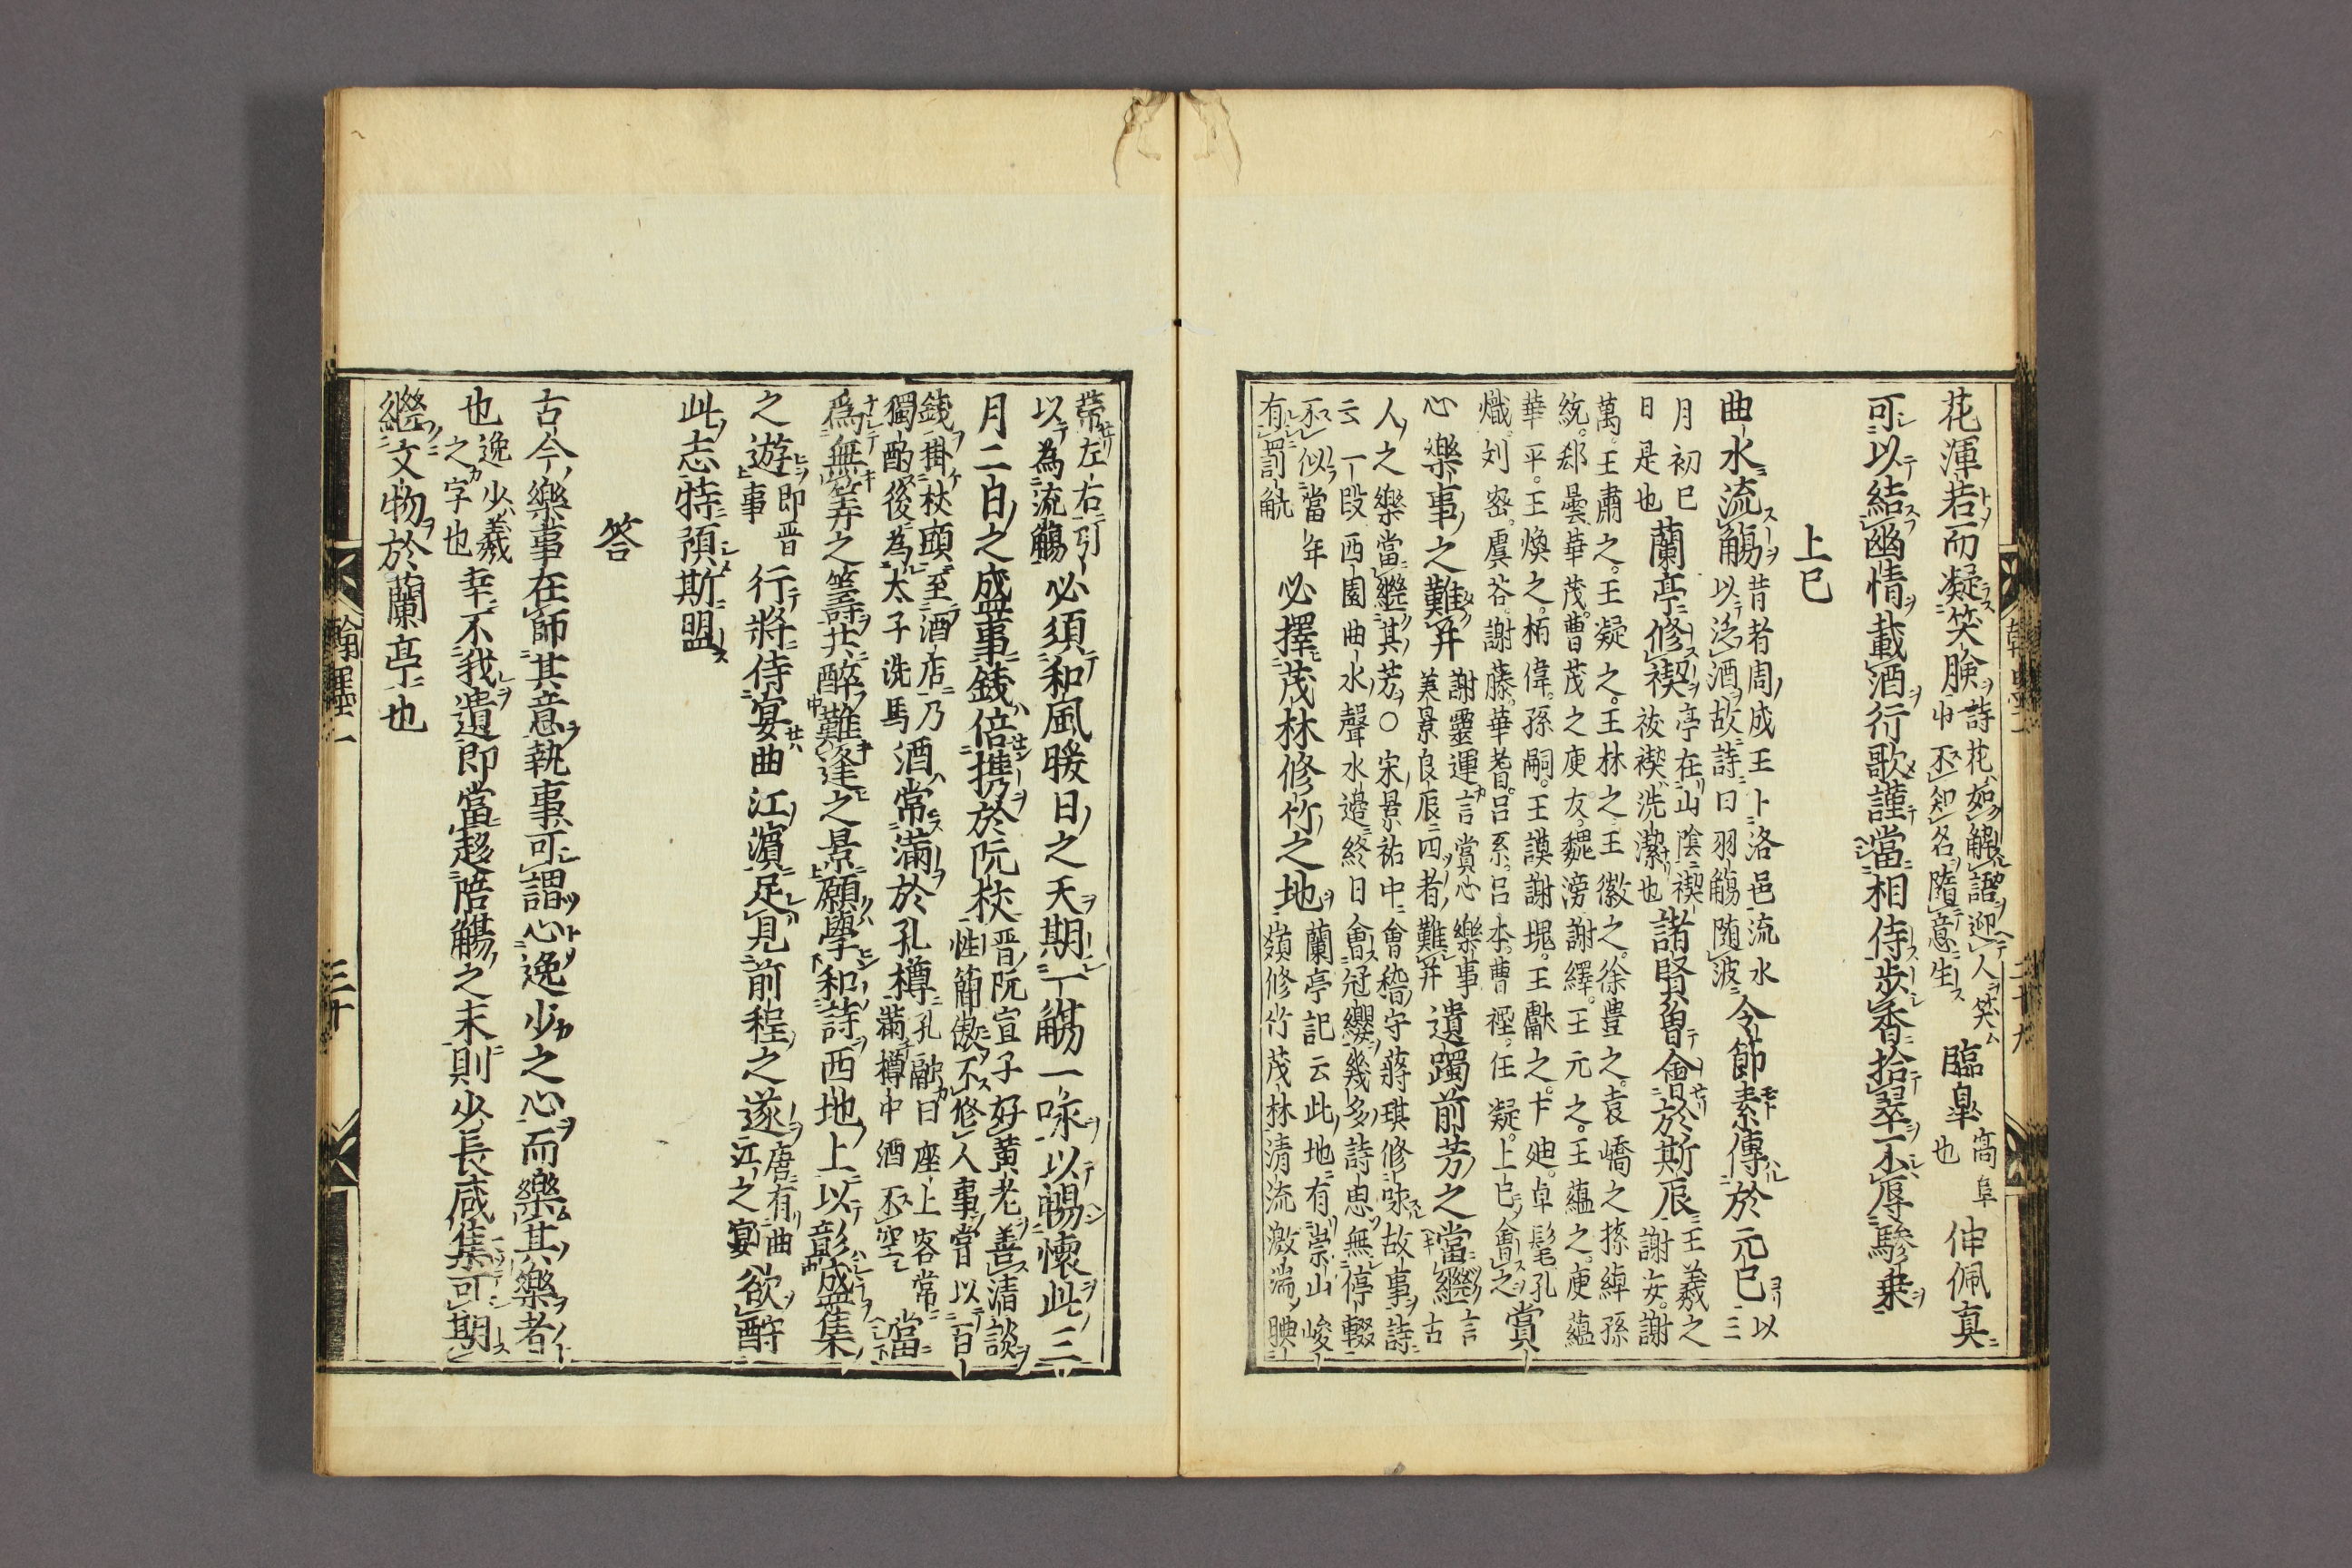 花渾若而凝笑臉詩花如解語迎人笑
屮不知名隨意生臨皐高阜
也伸佩真
可以結幽情載酒行歌謹當相侍步香拾翠不辱驂乗
上巳
曲水流觴昔者周成王卜洛邑流水
以泛酒故詩曰羽觴随波令節素傳於元巳以
三
月初巳
日是也蘭亭修禊亭在山陰禊
祓禊洗潔也諸賢曾會於斯辰王羲之
謝安謝
萬王肅之王凝之王林之王徽之徐豊之袁嶠之孫綽孫
統郄曇華茂曹茂之庾友魏滂謝繹王元之王蘊之庾蘊
華平王煥之栢偉孫嗣王謨謝塊王獻之卞廸卓髦孔
熾刘密虞谷謝藤華耆吕系吕本曹禋任凝上巳會之賞
心樂事之難并謝靈運言賞心樂事
美景良辰四者難并遺躅前芳之當繼言
古
人之樂當繼其芳○宋景祐中會稽守蔣琪修咏故事詩
云一段西園曲水聲水邉終日會冠纓幾多詩思無停輟
不似當年
有罰觥必擇茂林修竹之地蘭亭記云此地有崇山峻
嶺修竹茂林清流激湍映
翰墨一 二十九
帶左右引
以為流觴必須和風暖日之天期一觴一咏以暢懷此三
月二日之盛事錢倍携於阮杖晋阮宣子好黄老善清談
性簡傲不修人事甞以百
錢掛杖頭至酒店乃
獨酌後為太子洗馬酒常滿於孔樽孔融曰座上客常
滿樽中酒不空當
為無筭之籌共醉難逢之景願學和詩西地上以彰盛集
之遊即晋
事行將侍宴曲江濵足見前程之遂唐有曲
江之宴欲酧
此志特預斯盟
答
古今樂事在師其意執事可謂心逸少之心而樂其樂者
也逸少羲
之字也幸不我遺即當趍陪觴之末則少長咸集可期
繼文物於蘭亭也
翰墨一 三十